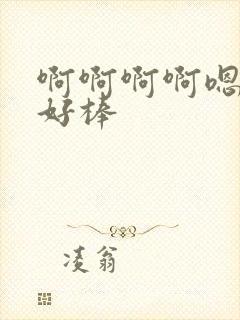 啊啊啊啊嗯
好棒
凌翁